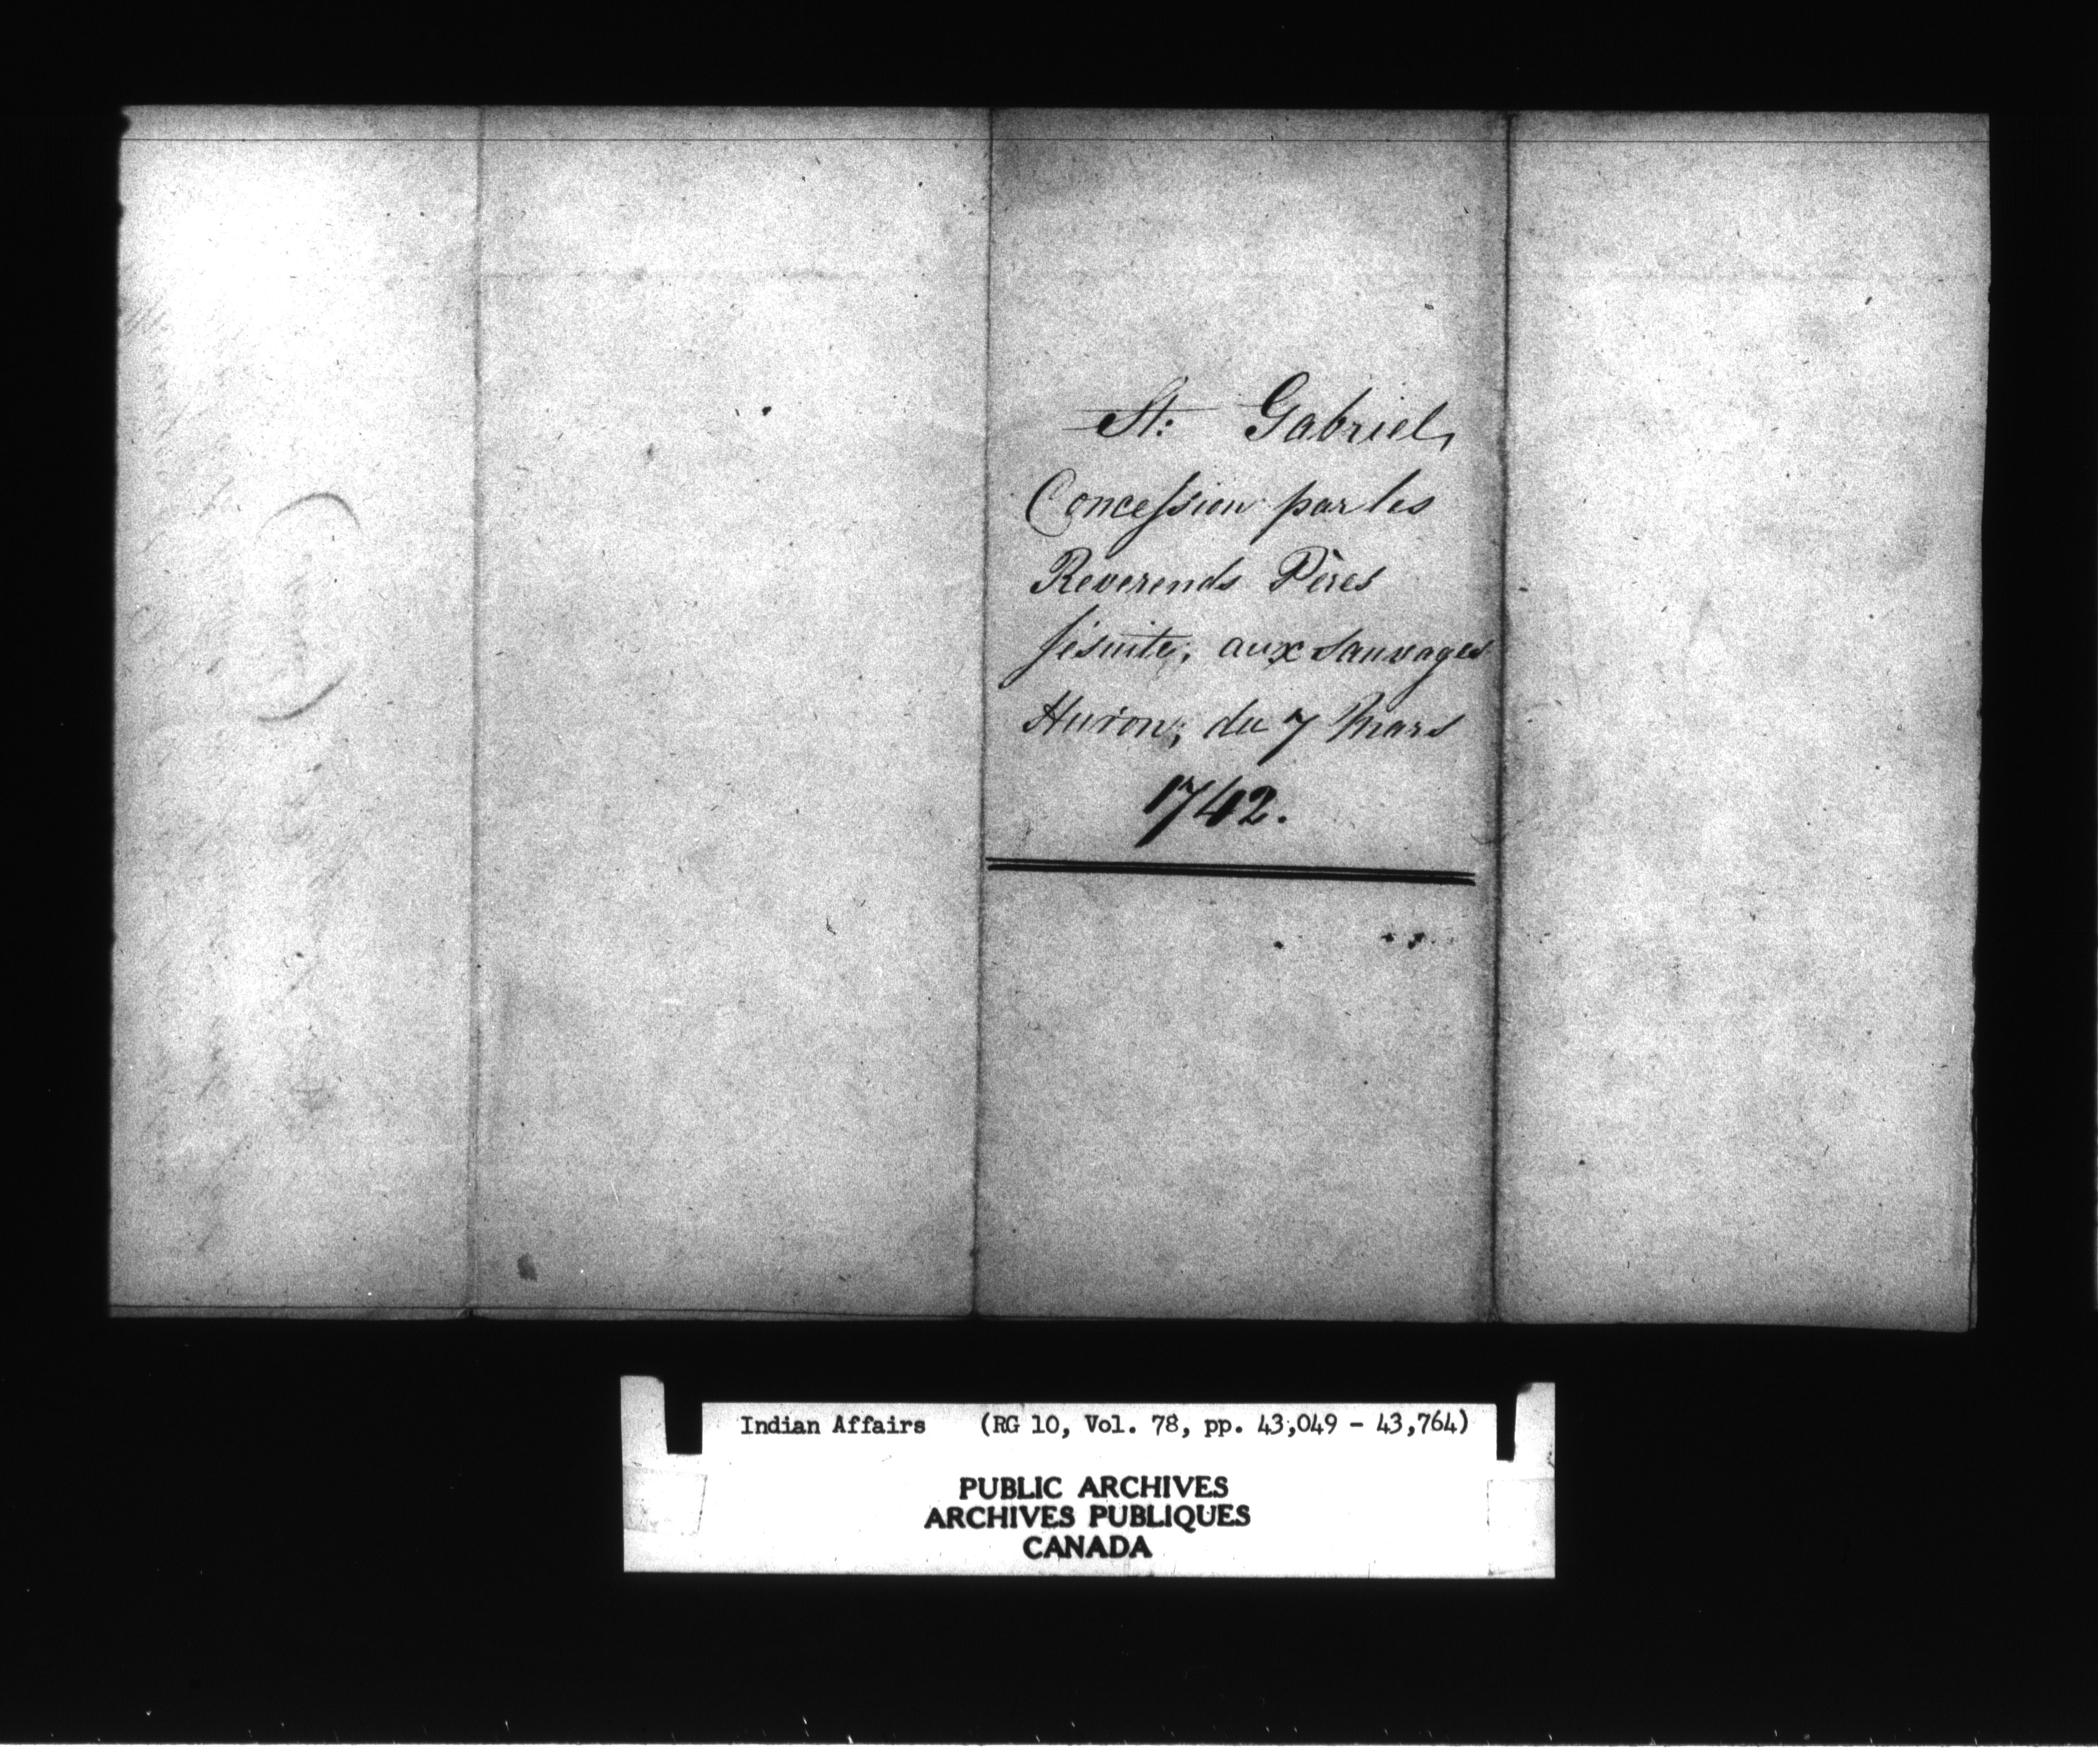 St: Gabriel,
Concession par les
Reverends Pères
Jésuite, aux Sauvages
Huron, du 7 Mars
1742.
Indian Affairs (RG 10, Vol. 78, pp. 43,049 - 43,764)
PUBLIC ARCHIVES
ARCHIVES PUBLIQUES
CANADA